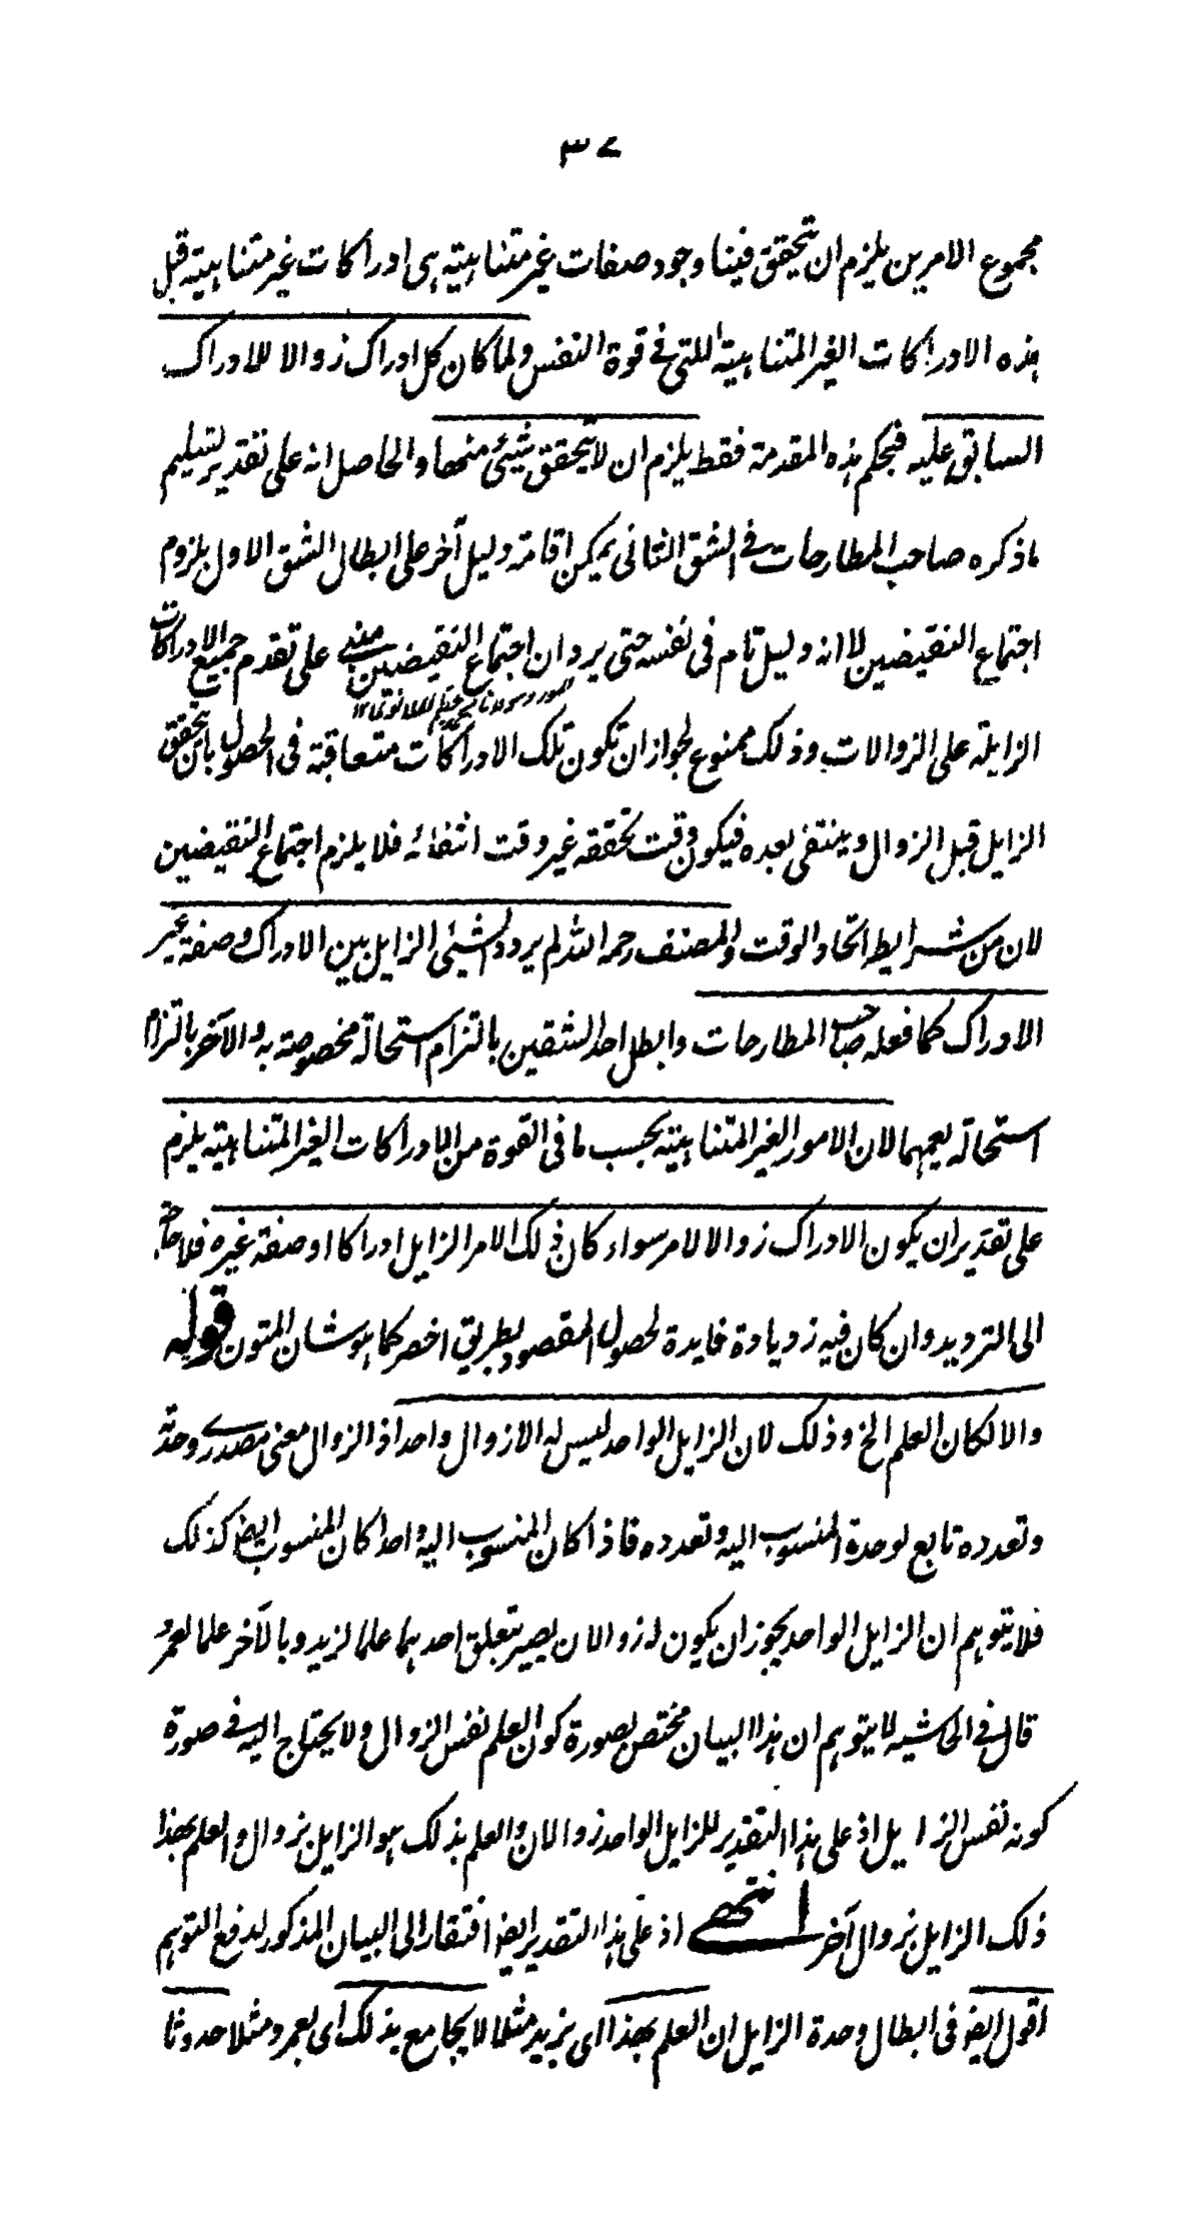 ٣٧
مجموع الامرين يلزم ان يتحقق فينا وجود صفات غير متناهية هي ادراكات غير متناهية قبل
هذه الادراكات الغير المتناهية اللتى في قوة النفس ولما كان كل ادراك زوالا للادراك
السابق عليه فبحكم هذه المقدمة فقط يلزم ان لا يتحقق شيئ منها والحاصل انه على تقدير تسليم
ما ذكره صاحب المطارحات في الشق الثانى يمكن اقامة دليل آخر على ابطال الشق الاول بلزوم
اجتماع النقيضين لا انه دليل تام فى نفسه حتى يرد ان اجتماع النقيضين مبنى على تقدم جميع الادراكات
الزايلة على الزوالات وذلك ممنوع لجواز ان تكون تلك الادراكات متعاقبة فى الحصول بان يتحقق
الزايل قبل الزوال وينتفى بعده فيكون وقت تحققه غير وقت انتفائه فلا يلزم اجتماع النقيضين
لان من شرايط اتحاد الوقت والمصنف رحمه الله لم يردد الشيئ الزايل بين الادراك وصفة غير
الادراك كما فعله صاحب المطارحات وابطل احد الشقين بالتزام استحالة مخصوصة به والآخر بالتزام
استحالة يعمهما لان الامور الغير المتناهية بحسب ما فى القوة من الادراكات الغير المتناهية يلزم
على تقدير ان يكون الادراك زوالا لامر سواء كان ذلك الامر الزايل ادراكا او صفة غيره فلا حاجة
الى الترديد وان كان فيه زديادة فايدة لحصول المقصود بطريق اخصر كما هو شان المتون قوله
والا لكان العلم الخ وذلك لان الزايل الواحد ليس له الا زوال واحد اذ الزوال معنى مصدرى وحدته
وتعدده تابع لوحدة المنسوب اليه وتعدده فاذا كان المنسوب اليه واحدا كان المنسوب ايضا كذلك
فلا يتوهم ان الزايل الواحد يجوز ان يكون له زوالان يصير بتعلق احدهما علما لزيد وبالآخر علما لعمرو
قال فى الحاشيه لا يتوهم ان هذا البيان مختص بصورة كون العلم نفس الزوال ولا يحتاج اليه في صورة
كونه نفس الزايل اذ على هذا التقدير للزايل الواحد زوالان والعلم بذلك هو الزايل بزوال والعلم بهذا
ذلك الزايل بزوال آخر انتهى اذ على هذا التقدير ايضا افتقار الى البيان المذكور لدفع التوهم
اقول ايضا فى ابطال وحدة الزايل ان العلم بهذا اى بزيد مثلا لا يجامع بذلك اى بعمرو مثلا حدوثا